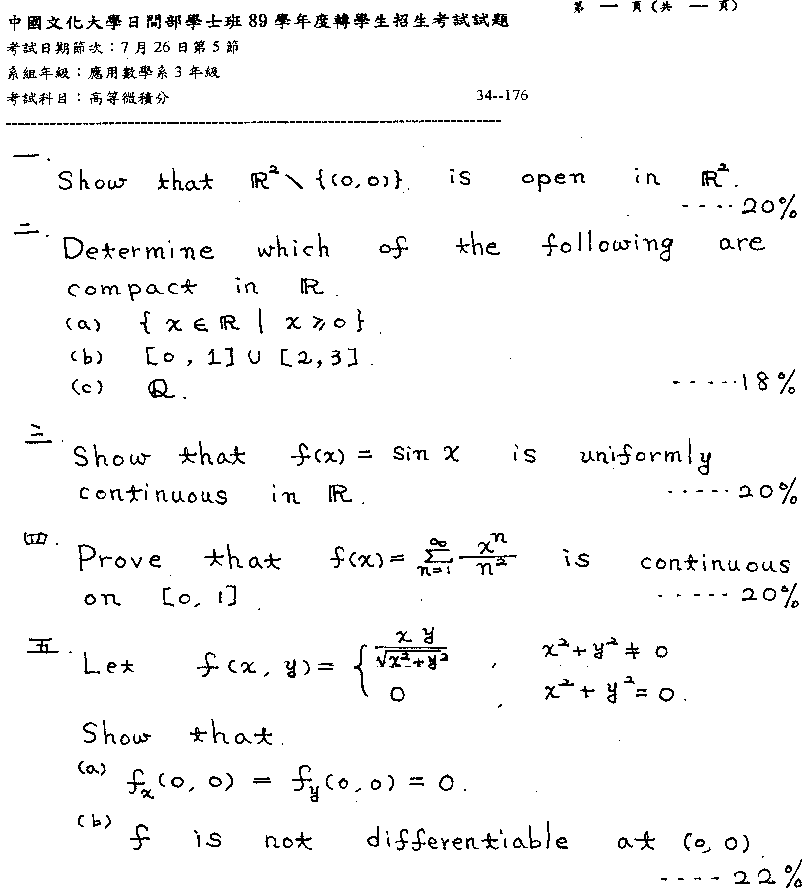 第 一 頁(共 一 頁)
中國文化大學日間部學士班 89 學年度轉學生招生考試試題
考試日期節次：7 月 26 日第 5 節
系組年級：應用數學系 3 年級
考試科目：高等微積分 34--176
一. Show that ℝ² \ {(0,0)} is open in ℝ².
----20%
二. Determine which of the following are
compact in ℝ.
(a) { x ∈ ℝ | x ≥ 0 }.
(b) [0, 1] ∪ [2, 3].
(c) ℚ.
-----18%
三. Show that f(x) = sin x is uniformly
continuous in ℝ.
-----20%
四. Prove that f(x) = ∑_{n=1}^{∞} x^n/n² is continuous
on [0, 1].
-----20%
五. Let f(x, y) = { xy/√(x²+y²) , x²+y² ≠ 0
0 , x²+y² = 0.
Show that.
(a) f_x(0, 0) = f_y(0, 0) = 0.
(b) f is not differentiable at (0, 0)
----22%